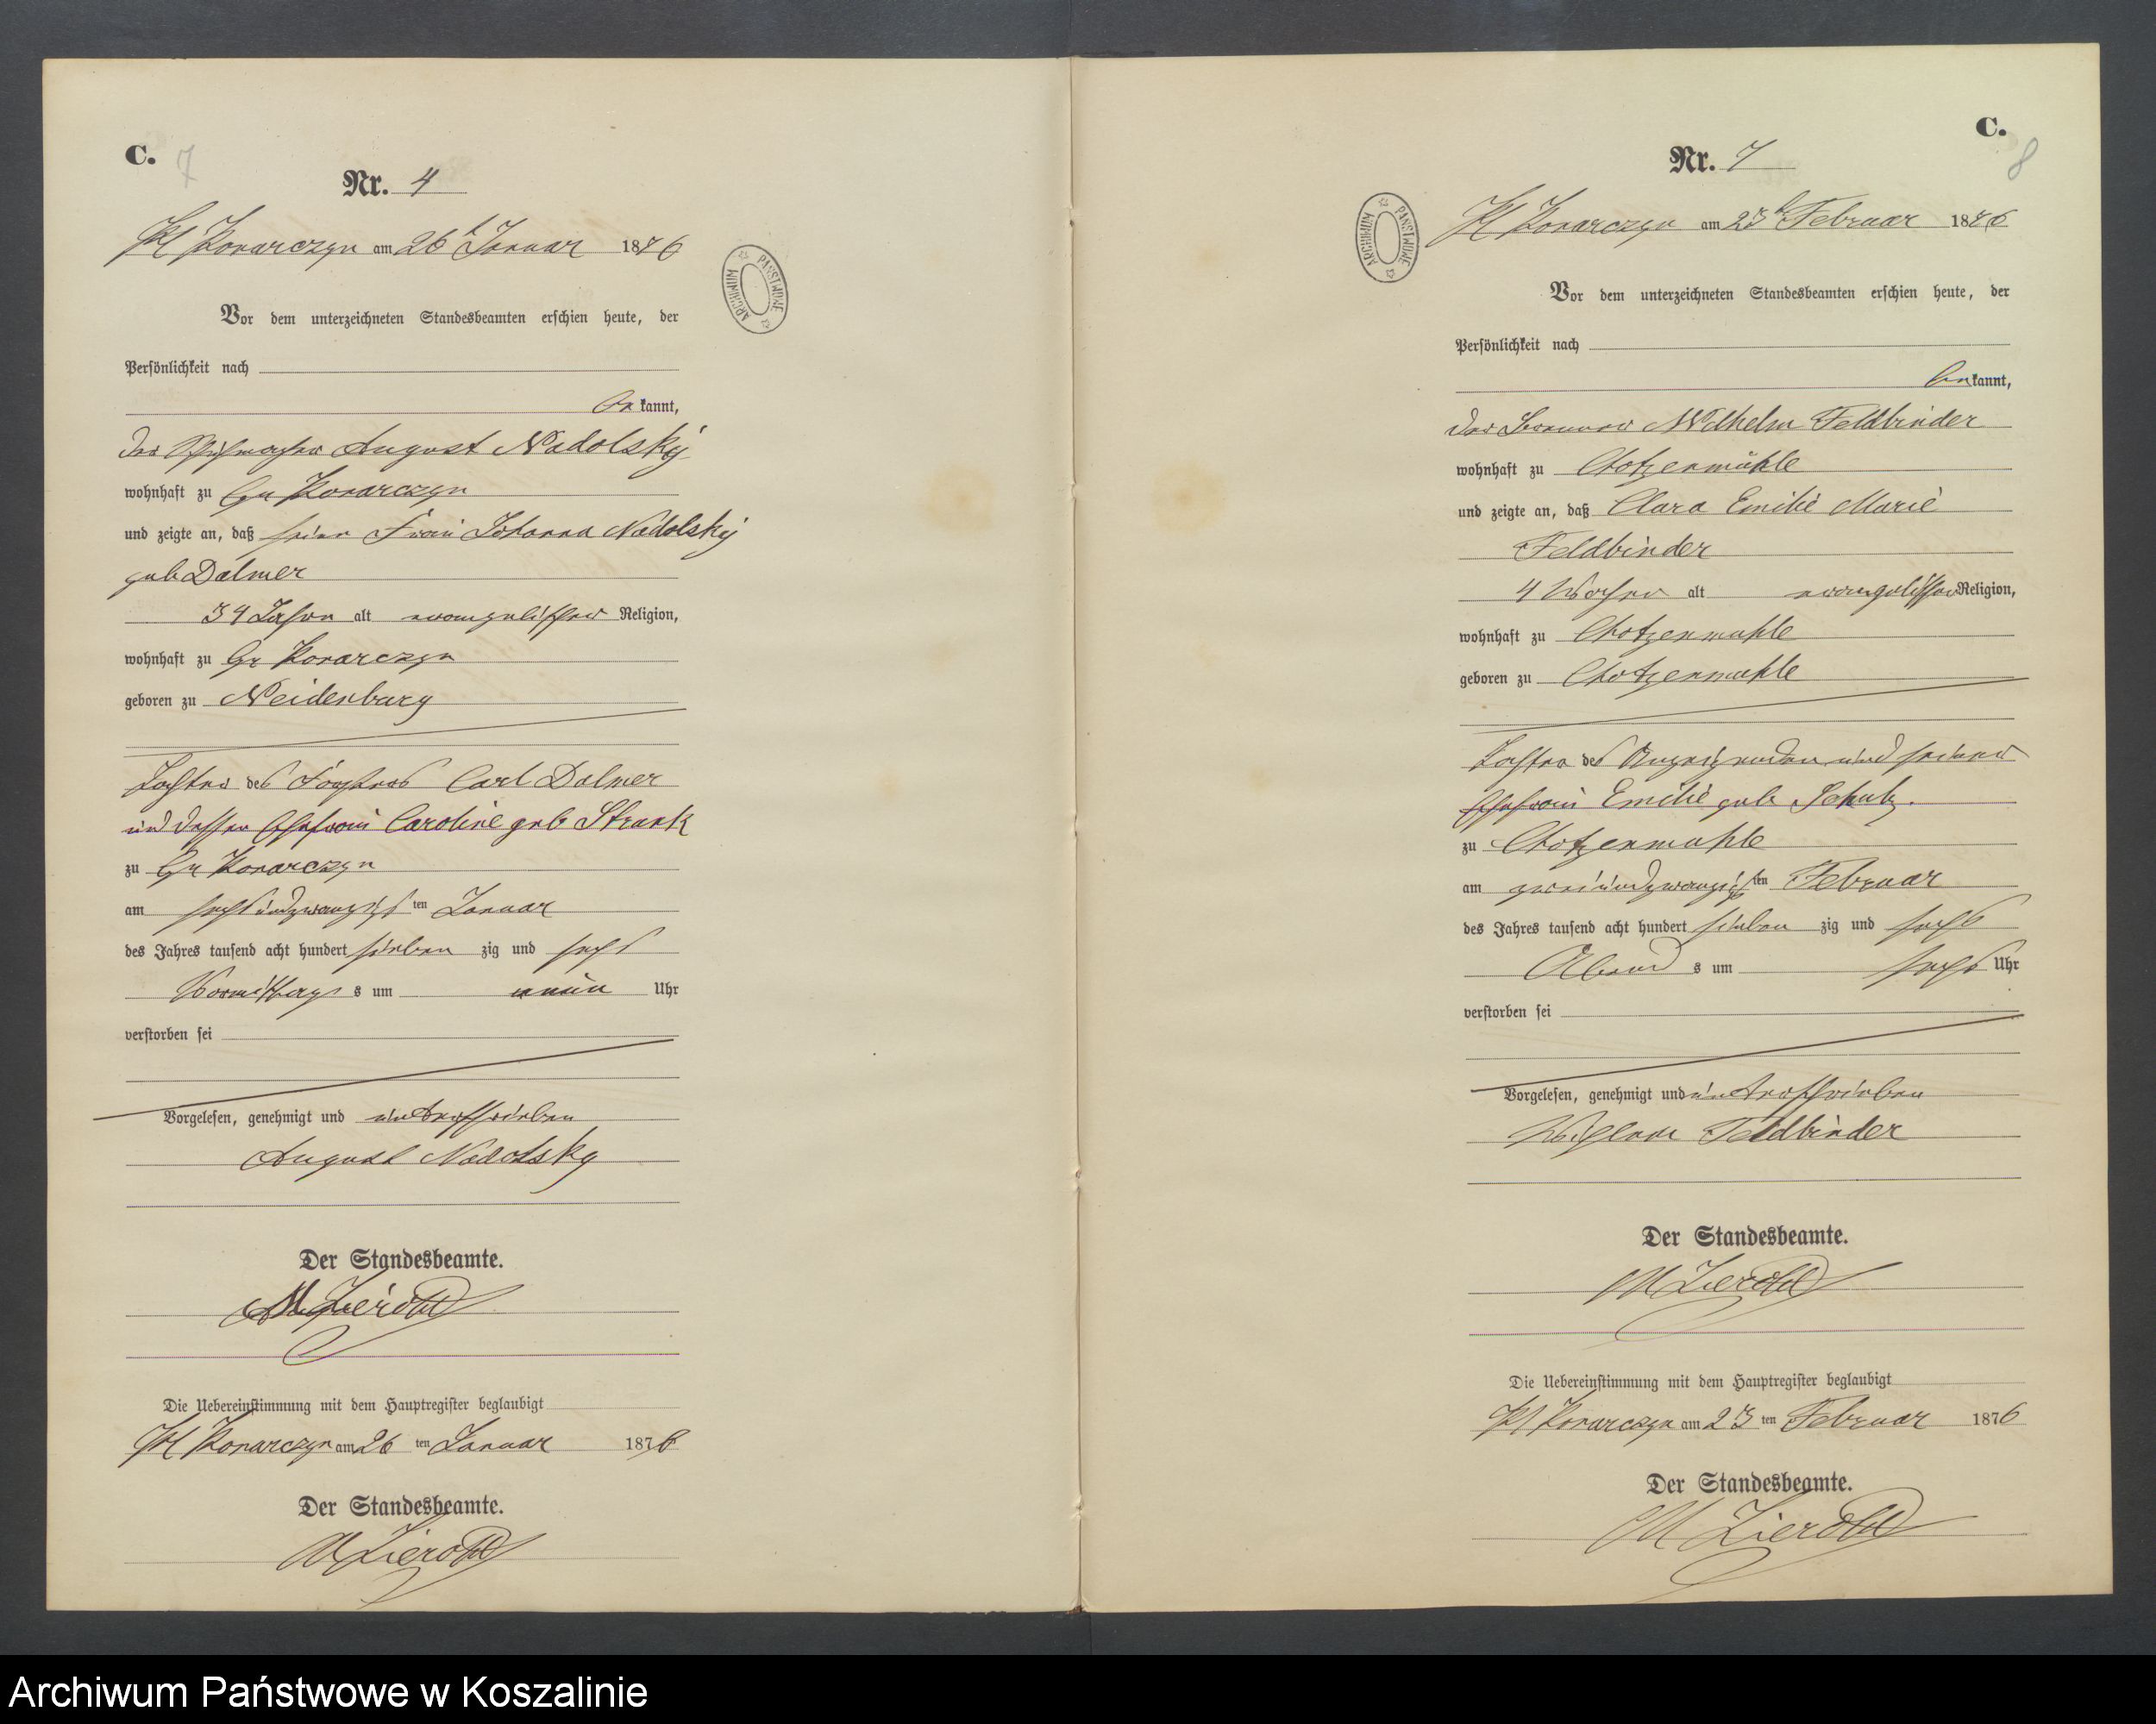 C. 7
Nr. 4
Kl Konarczyn am 26t Januar 1876
Vor dem unterzeichneten Standesbeamten erschien heute, der
Persönlichkeit nach
be kannt,
der August Nadolsky
wohnhaft zu Gr Konarczyn
und zeigte an, daß seine Frau Johanna Nadolsky
geb Dalmer
34 Jahre alt evangelischer Religion,
wohnhaft zu Gr Konarczyn
geboren zu Neidenburg
Tochter des Försters Carl Dalmer
und dessen Ehefrau Caroline geb
zu Gr Konarczyn
am sechsundzwanzigsten Januar
des Jahres tausend acht hundert sieben zig und sechs
Vormittags um neun Uhr
verstorben sei
Vorgelesen, genehmigt und unterschrieben
August Nadolsky
Der Standesbeamte.
Die Uebereinstimmung mit dem Hauptregister beglaubigt
Kl Konarczyn am 26 ten Januar 1876
Der Standesbeamte.
ARCHIWUM PAŃSTWOWE
C.
8
Nr. 7
Kl Konarczyn am 23t Februar 1876
Vor dem unterzeichneten Standesbeamten erschien heute, der
Persönlichkeit nach
be kannt,
der Brenner Wilhelm Feldbinder
wohnhaft zu Chotzenmühle
und zeigte an, daß Clara Emilie Marie
Feldbinder
4 Wochen alt evangelischer Religion,
wohnhaft zu Chotzenmühle
geboren zu Chotzenmühle
Tochter des Anzeigenden und seiner
Ehefrau Emilie geb Schulz.
zu Chotzenmühle
am zweiundzwanzigsten Februar
des Jahres tausend acht hundert sieben zig und sechs
Abend s um sechs Uhr
verstorben sei
Vorgelesen, genehmigt und unterschrieben
Wilhelm Feldbinder
Der Standesbeamte.
Die Uebereinstimmung mit dem Hauptregister beglaubigt
Kl Konarczyn am 23 ten Februar 1876
Der Standesbeamte.
ARCHIWUM PAŃSTWOWE
Archiwum Państwowe w Koszalinie